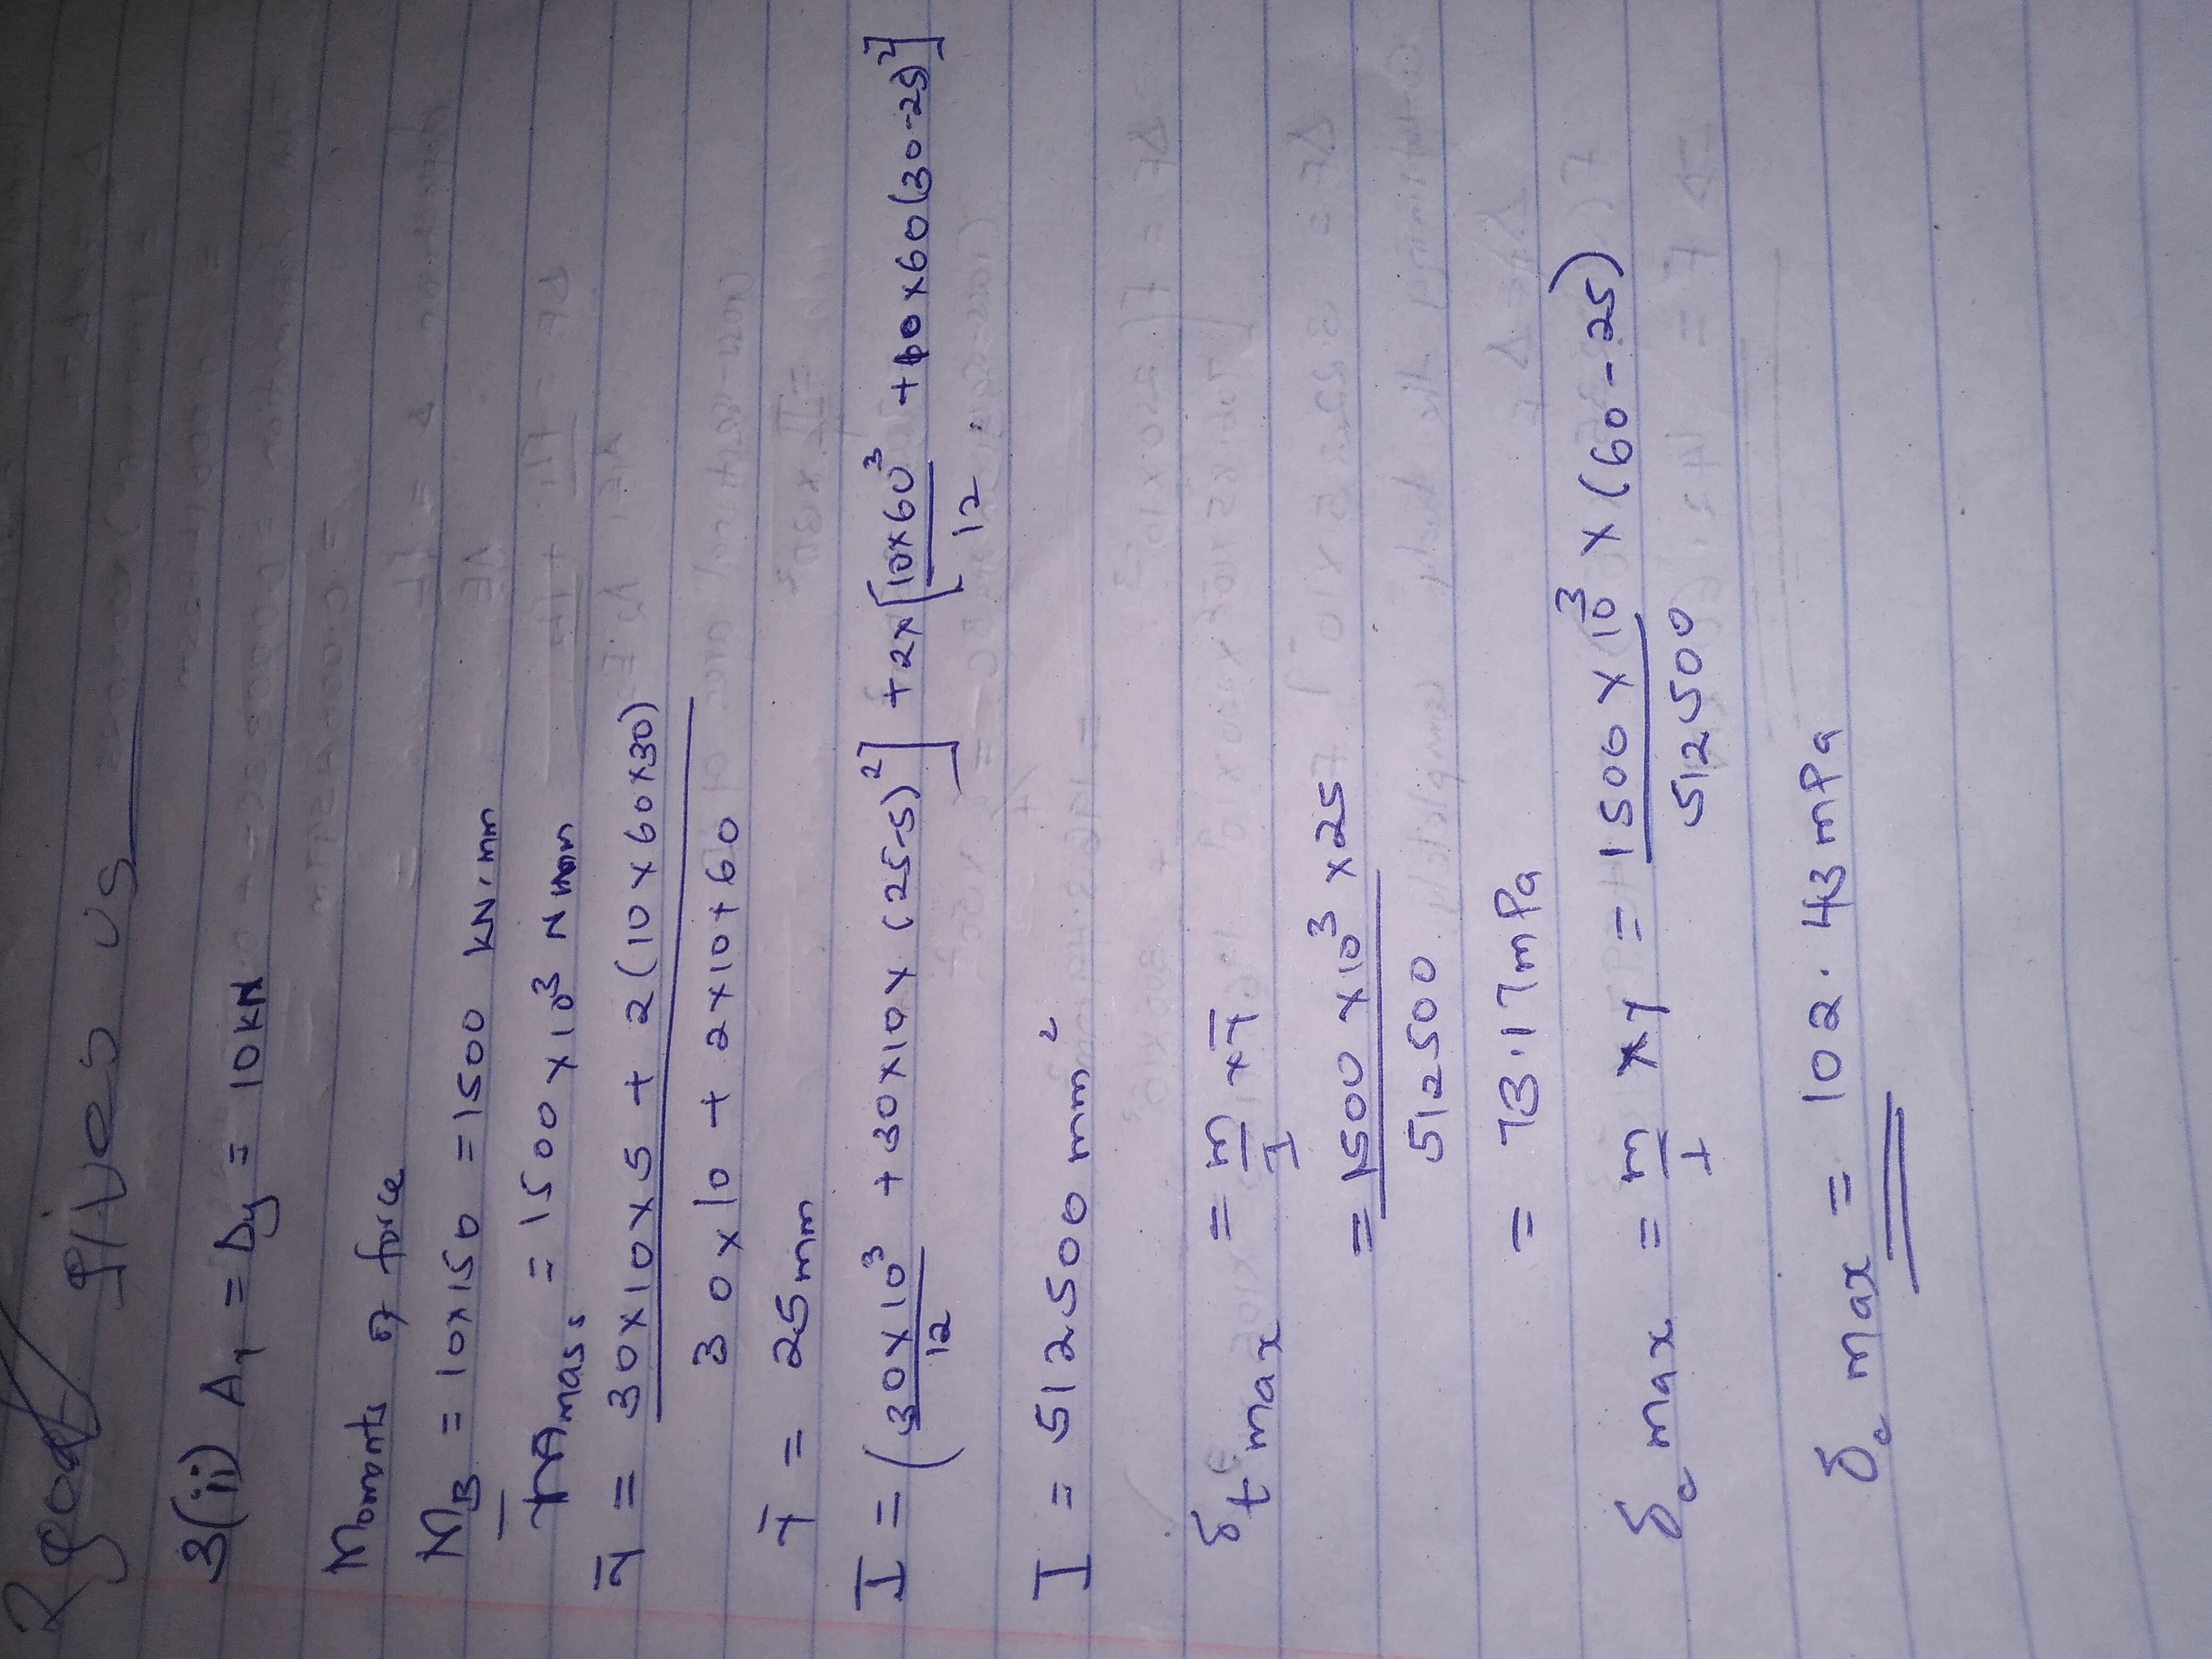 gives us
3(i) Ay = Dy = 10kN
Moments of force
MB = 10×150 = 1500 kN.mm
= 1500 × 10³ N mm
ȳ = 30×10×5 + 2(10×60×30)
30×10 + 2×10+60
ȳ = 25mm
I = (30×10³/12 + 30×10×(25-5)²] + 2×[10×60³/12 + 10×60(30-25)²]
I = 512500 mm²
δt max = m/I × ȳ
= 1500 × 10³ × 25
512500
= 73.17mPa
δc max = m/I × y = 1500 × 10³ × (60-25)
512500
δc max = 102.43mPa